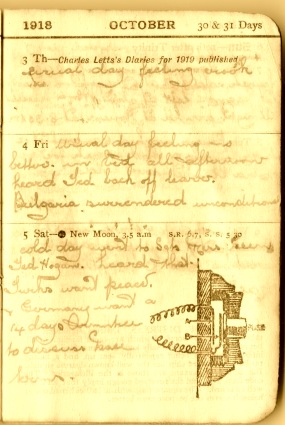 1918 OCTOBER 30 & 31 Days
3 Th—Charles Letts's Diaries for 1919 published
Usual day feeling
4 Fri Usual day feeling no
better. in bed all afternoon
heard Ted back off leave.
Bulgaria surrendered unconditional
5 Sat— New Moon, 3.5 a.m S.R. 6.7, S.S. 5.30
cold day went to
Ted Hogan. heard that
Turks want peace.
Germany want a
14 days
to discuss
A
B